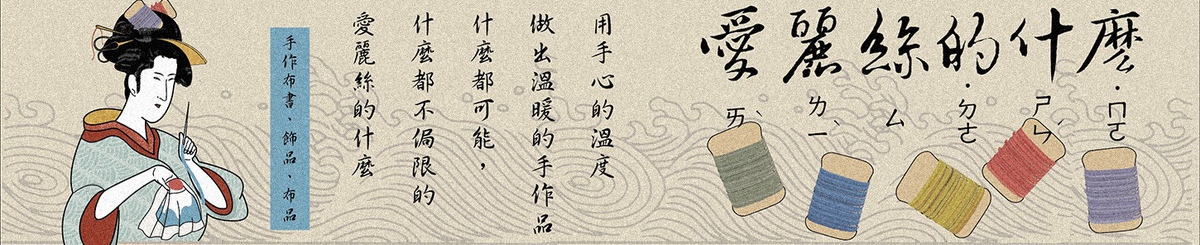 愛麗絲的什麼
ㄞˋ ㄌㄧˋ ㄙ ˙ㄉㄜ ㄕㄣˊ ˙ㄇㄜ
用手心的溫度
做出溫暖的手作品
什麼都可能，
什麼都不侷限的
愛麗絲的什麼
手作布書、飾品、布品